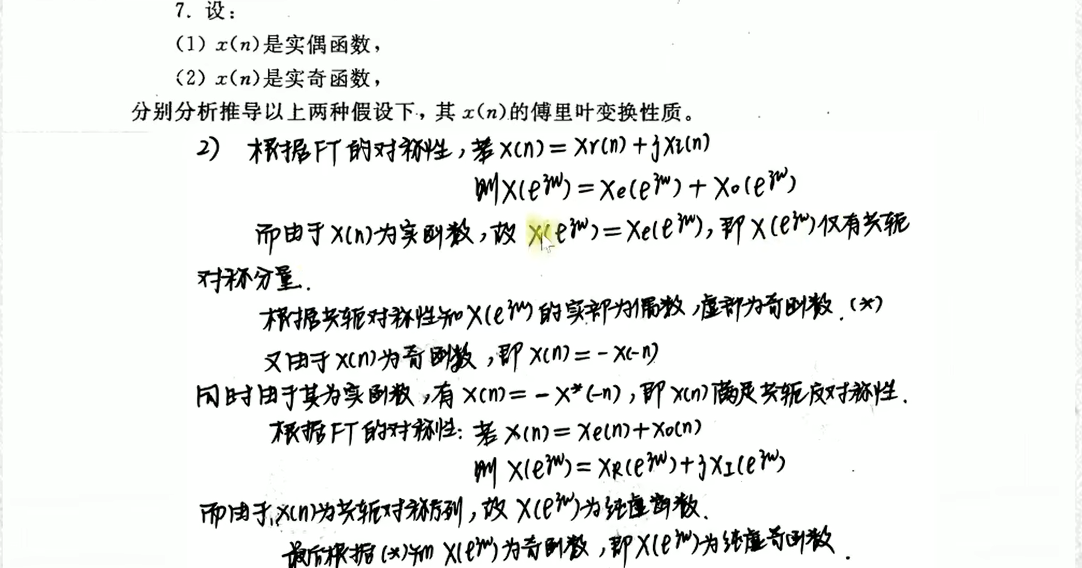 7. 设：
(1) x(n)是实偶函数，
(2) x(n)是实奇函数，
分别分析推导以上两种假设下，其 x(n)的傅里叶变换性质。
2) 根据FT的对称性，若x(n)=xr(n)+jxi(n)
则X(e^jw)=Xe(e^jw)+Xo(e^jw)
而由于x(n)为实函数，故X(e^jw)=Xe(e^jw)，即X(e^jw)仅有共轭
对称分量.
根据共轭对称性知X(e^jw)的实部为偶数，虚部为奇函数.(*)
又由于x(n)为奇函数，即x(n)=-x(-n)
同时由于其为实函数，有x(n)=-x*(-n)，即x(n)满足共轭反对称性.
根据FT的对称性：若x(n)=xe(n)+xo(n)
则X(e^jw)=XR(e^jw)+jXI(e^jw)
而由于x(n)为共轭对称序列，故X(e^jw)为纯虚函数.
最后根据(*)知X(e^jw)为奇函数，即X(e^jw)为纯虚奇函数.